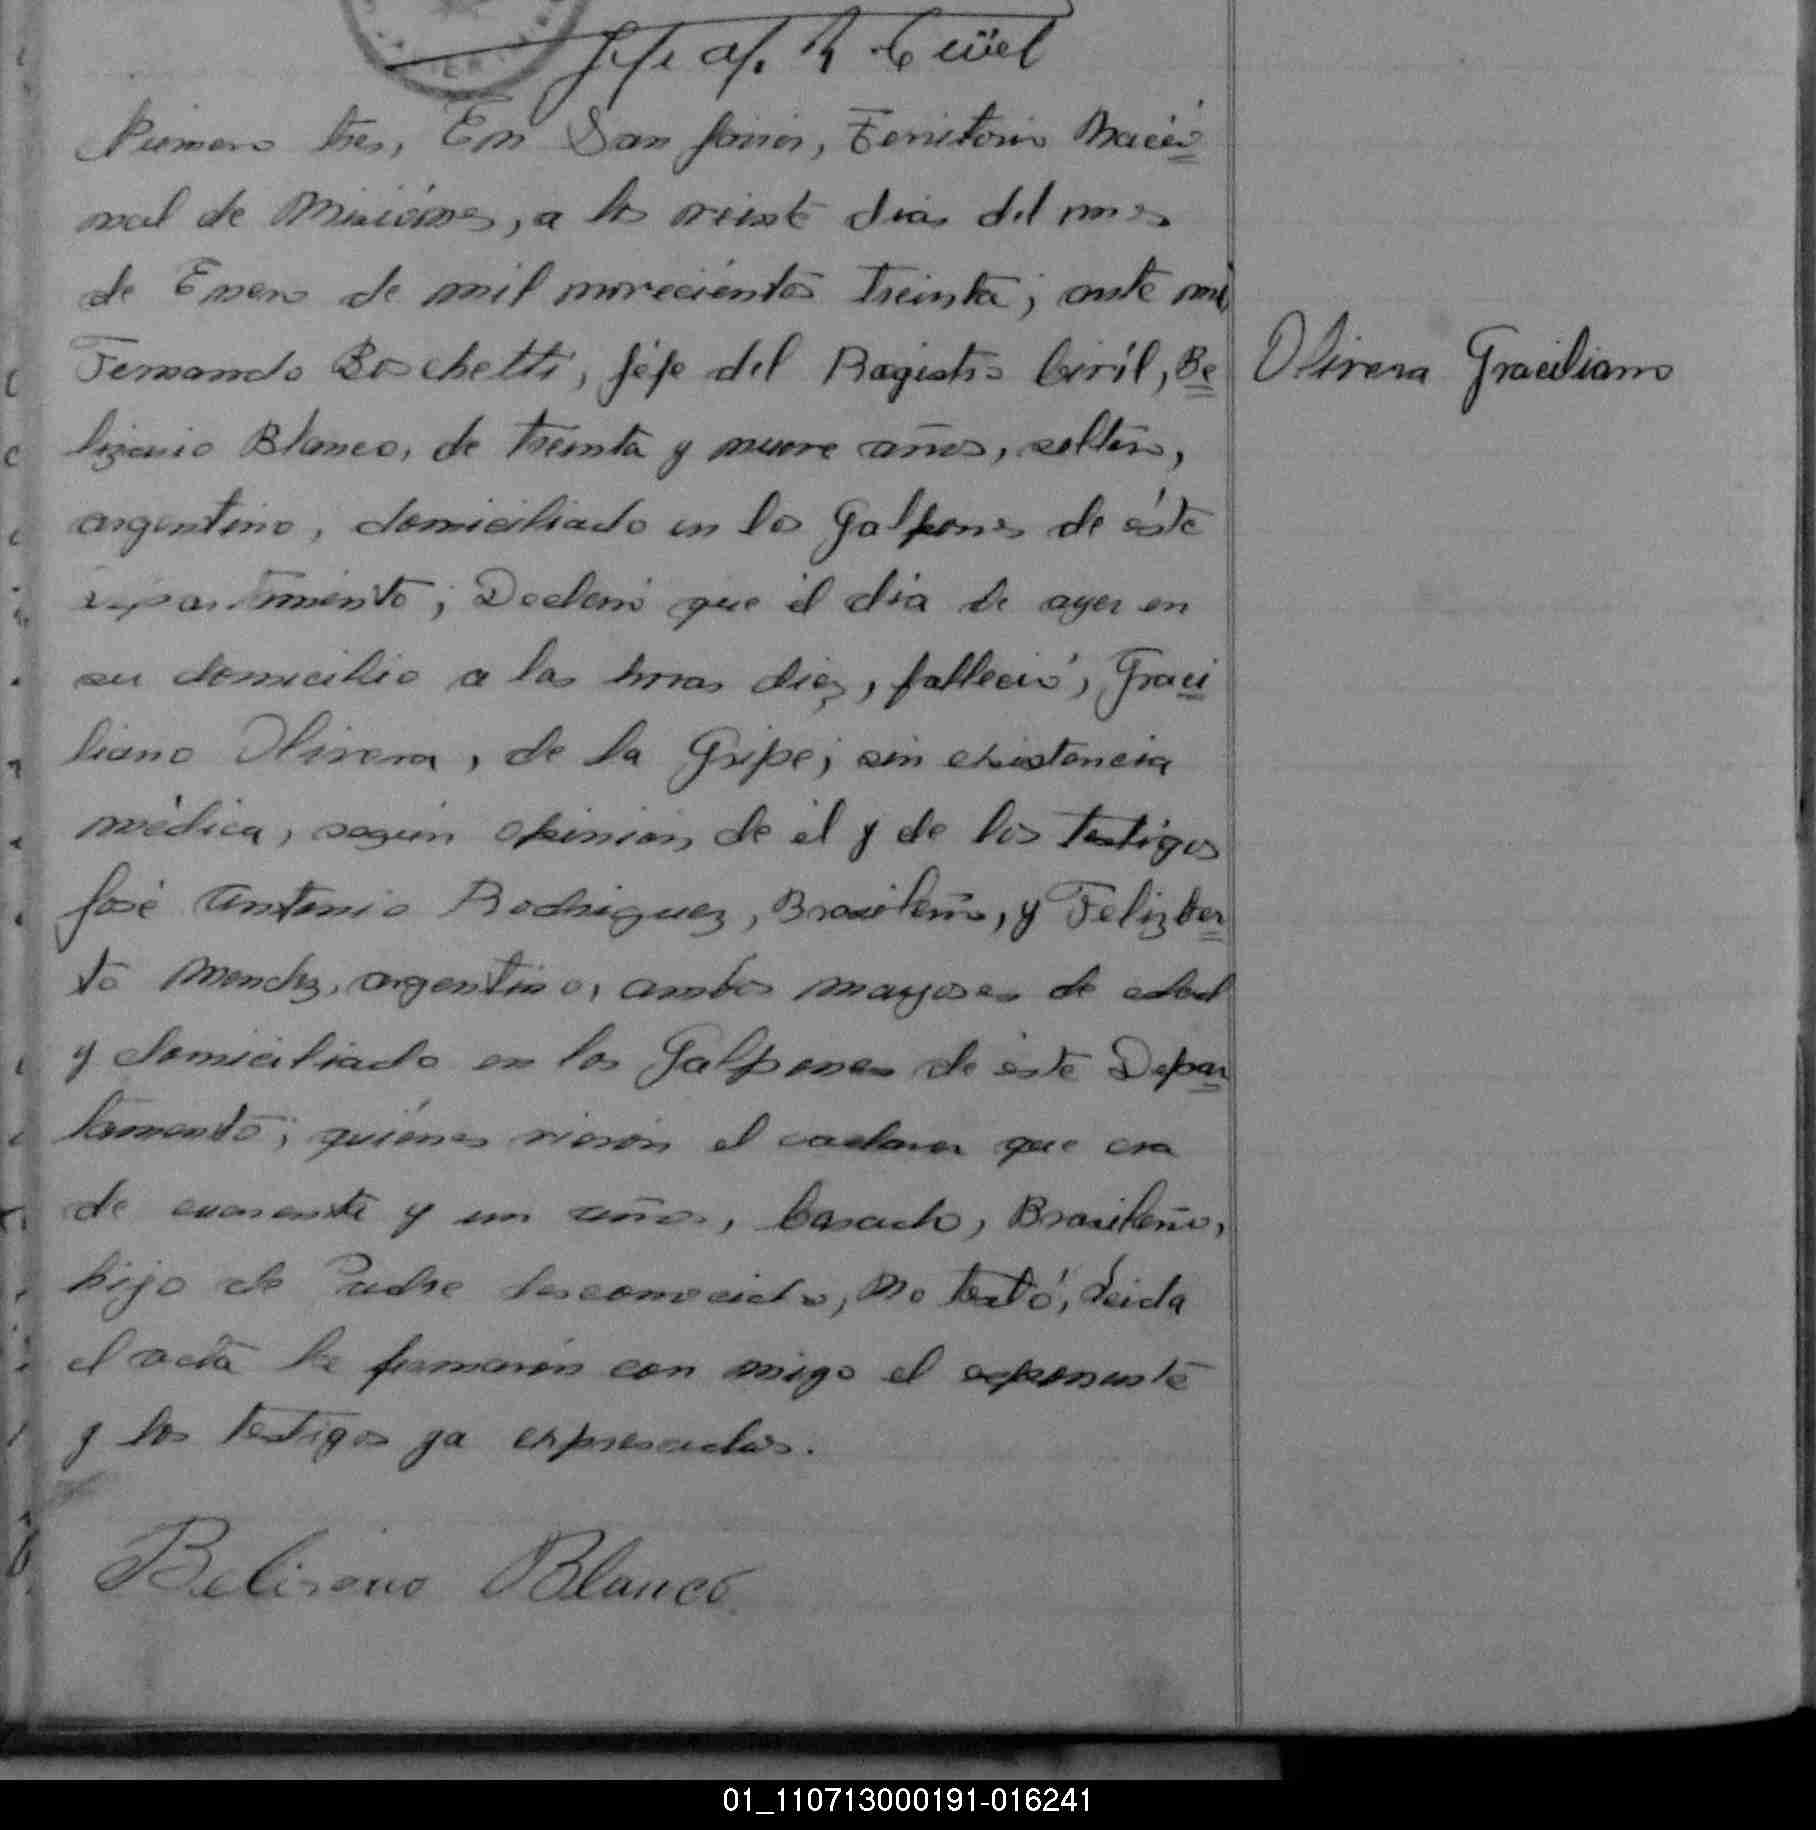 Jefe del R. Civil
Número tres, En San Javier, Territorio Nacio
nal de Misiónes, a los veinte dias del mes
de Enero de mil noveciéntos treinta; ante mi
Fernando Boschetti, Jéfe del Registro Civíl, Be
Olivera Graciliano
lizario Blanco, de treinta y nueve años, soltero,
argentino, domiciliado en los Galpones de éste
departamiento; Declaró que él día de ayer en
su domicilio a las horas diez, falleció, Graci
liano Olivera, de la Gripe; sin existencia
médica, según opinión, de él y de los testigos
José Antonio Rodriguez, Brasileño, y Felizber
to Mendez, argentino, ambos mayores de edad
y domiciliado en los Galpones de éste Depar
tamento; quiénes vierón el cadaver que era
de cuarenta y un años, Casado, Brasileño,
hijo de Padre desconocido, No testó, Leida
el acta la firmarón con migo el exponente
y los testigos ya expresados.
Belisario Blanco
01_110713000191-016241